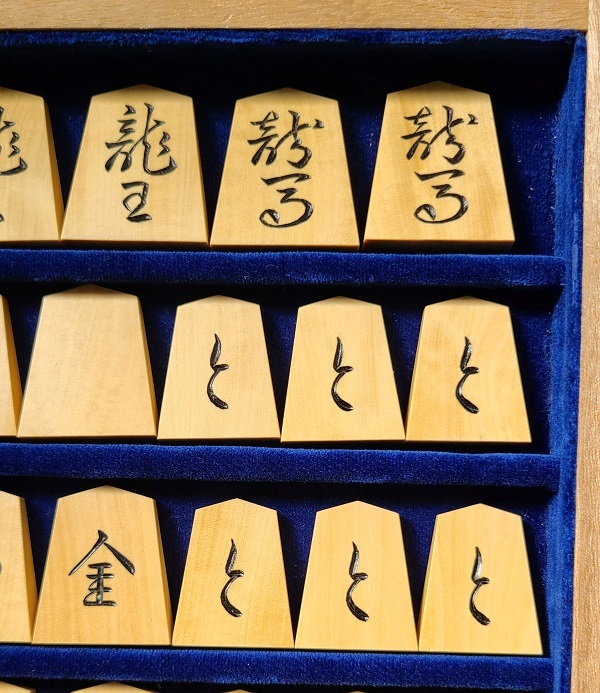 龍王
龍馬
龍馬
と
と
と
金
と
と
と